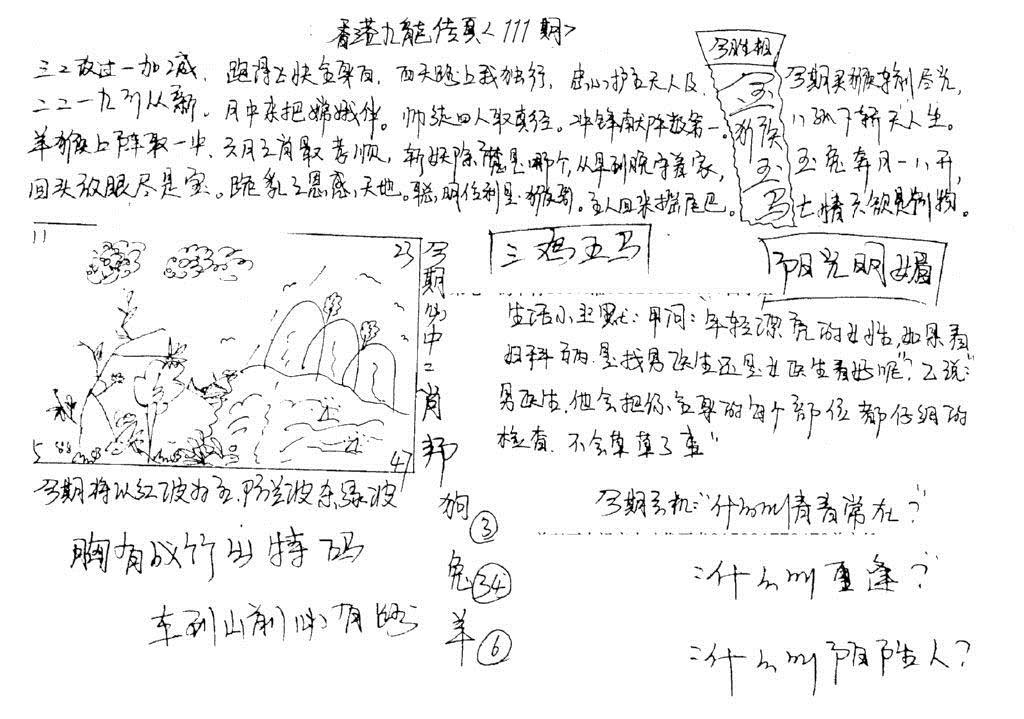 香港九龙传真<111期>
三二改过一加减，跑得上快全身白，西天路上我独行，忠心护主天人及
二二一九引从新。月中亲把嫦娥伴。师徒四人取真经。冲锋献阵数第一。
羊猴上阵取一中，六月之肖最孝顺，斩妖除魔是哪个，从早到晚守着家，
回头放眼尽是宝。跪乳之恩感天地。聪明伶利是猴哥。主人回来摇尾巴。
今胜相
玉
猴
玉
马
今期买猴
玉兔奔月一八开，
七情六欲是
三鸡五马
阳光明媚
11
23
5
47
今期必中一肖
狗
③
兔
㉞
羊
⑥
生活小幽默：甲问：年轻漂亮的女性，如果看
妇科病，是找男医生还是女医生看好呢？乙说：
男医生，他会把你全身的每个部位都仔细的
检查，不会草草了事"
今期将以红波为主，防兰波杀绿波
胸有成竹出特码
车到山前必有路
今期玄机："什么叫情有常在？"
：什么叫重逢？"
：什么叫阴阳人？